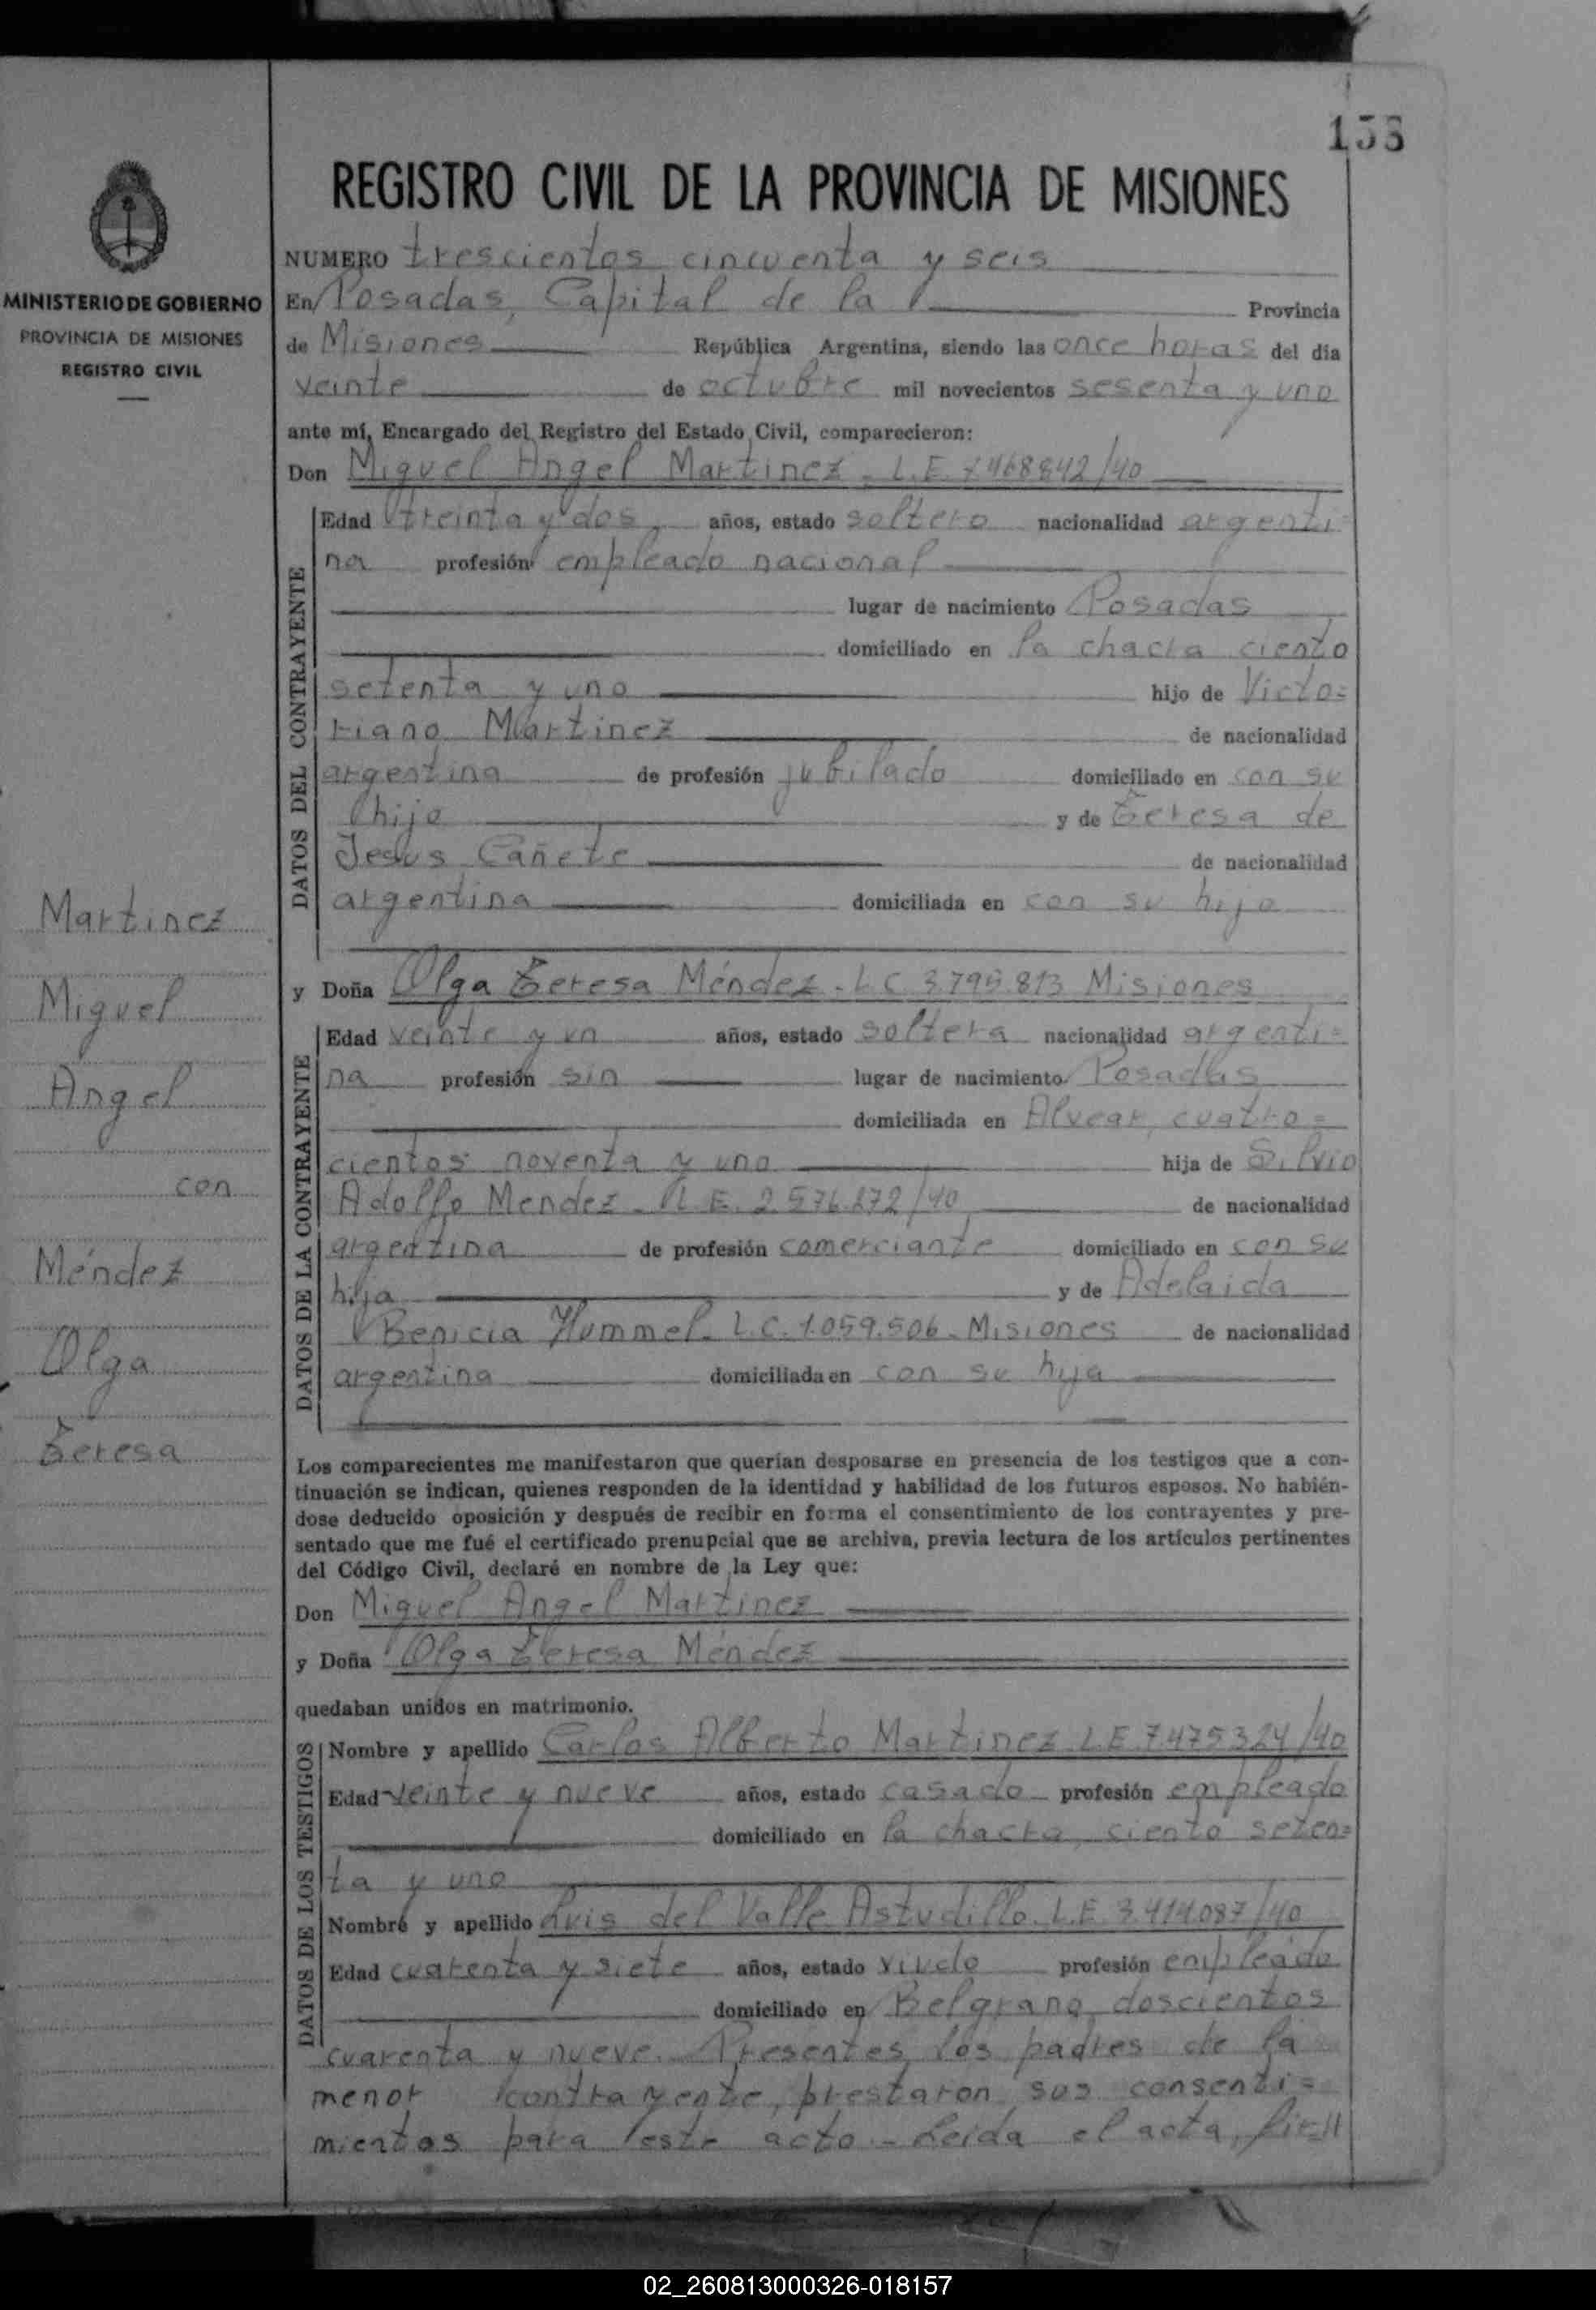 153
MINISTERIO DE GOBIERNO
PROVINCIA DE MISIONES
REGISTRO CIVIL
Martinez
Miguel
Angel
con
Méndez
Olga
Teresa
REGISTRO CIVIL DE LA PROVINCIA DE MISIONES
NUMERO trescientos cincuenta y seis
En Posadas, Capital de la Provincia
de Misiones República Argentina, siendo las once horas del día
veinte de octubre mil novecientos sesenta y uno
ante mí, Encargado del Registro del Estado Civil, comparecieron:
Don Miguel Angel Martinez - L.E. 7468842/40
DATOS DEL CONTRAYENTE
Edad treinta y dos, años, estado soltero nacionalidad argenti=
na profesión empleado nacional
lugar de nacimiento Posadas
domiciliado en la chacra ciento
setenta y uno hijo de Victo=
riano Martinez de nacionalidad
argentina de profesión jubilado domiciliado en con su
hijo y de Teresa de
Jesus Cañete de nacionalidad
argentina domiciliada en con su hijo
y Doña Olga Teresa Méndez - L.C. 3.795.813 Misiones
DATOS DE LA CONTRAYENTE
Edad veinte y un años, estado soltera nacionalidad argenti=
na profesión sin lugar de nacimiento Posadas
domiciliada en Alvear, cuatro=
cientos noventa y uno hija de Silvio
Adolfo Mendez - L.E. 2.576.272/40 de nacionalidad
argentina de profesión comerciante domiciliado en con su
hija y de Adelaida
Benicia Hummel - L.C. 1.059.506 - Misiones de nacionalidad
argentina domiciliada en con su hija
Los comparecientes me manifestaron que querían desposarse en presencia de los testigos que a con-
tinuación se indican, quienes responden de la identidad y habilidad de los futuros esposos. No habién-
dose deducido oposición y después de recibir en forma el consentimiento de los contrayentes y pre-
sentado que me fué el certificado prenupcial que se archiva, previa lectura de los artículos pertinentes
del Código Civil, declaré en nombre de la Ley que:
Don Miguel Angel Martinez
y Doña Olga Teresa Méndez
quedaban unidos en matrimonio.
DATOS DE LOS TESTIGOS
Nombre y apellido Carlos Alberto Martinez L.E. 7.475.324/40
Edad veinte y nueve años, estado casado profesión empleado
domiciliado en la chacra, ciento seten=
ta y uno
Nombre y apellido Luis del Valle Astudillo. L.E. 3.414.087/40
Edad cuarenta y siete años, estado viudo profesión empleado
domiciliado en Belgrano, doscientos
cuarenta y nueve. Presentes los padres de la
menor contrayente, prestaron sus consenti=
mientos para este acto - Leida el acta, fir=//
02_260813000326-018157